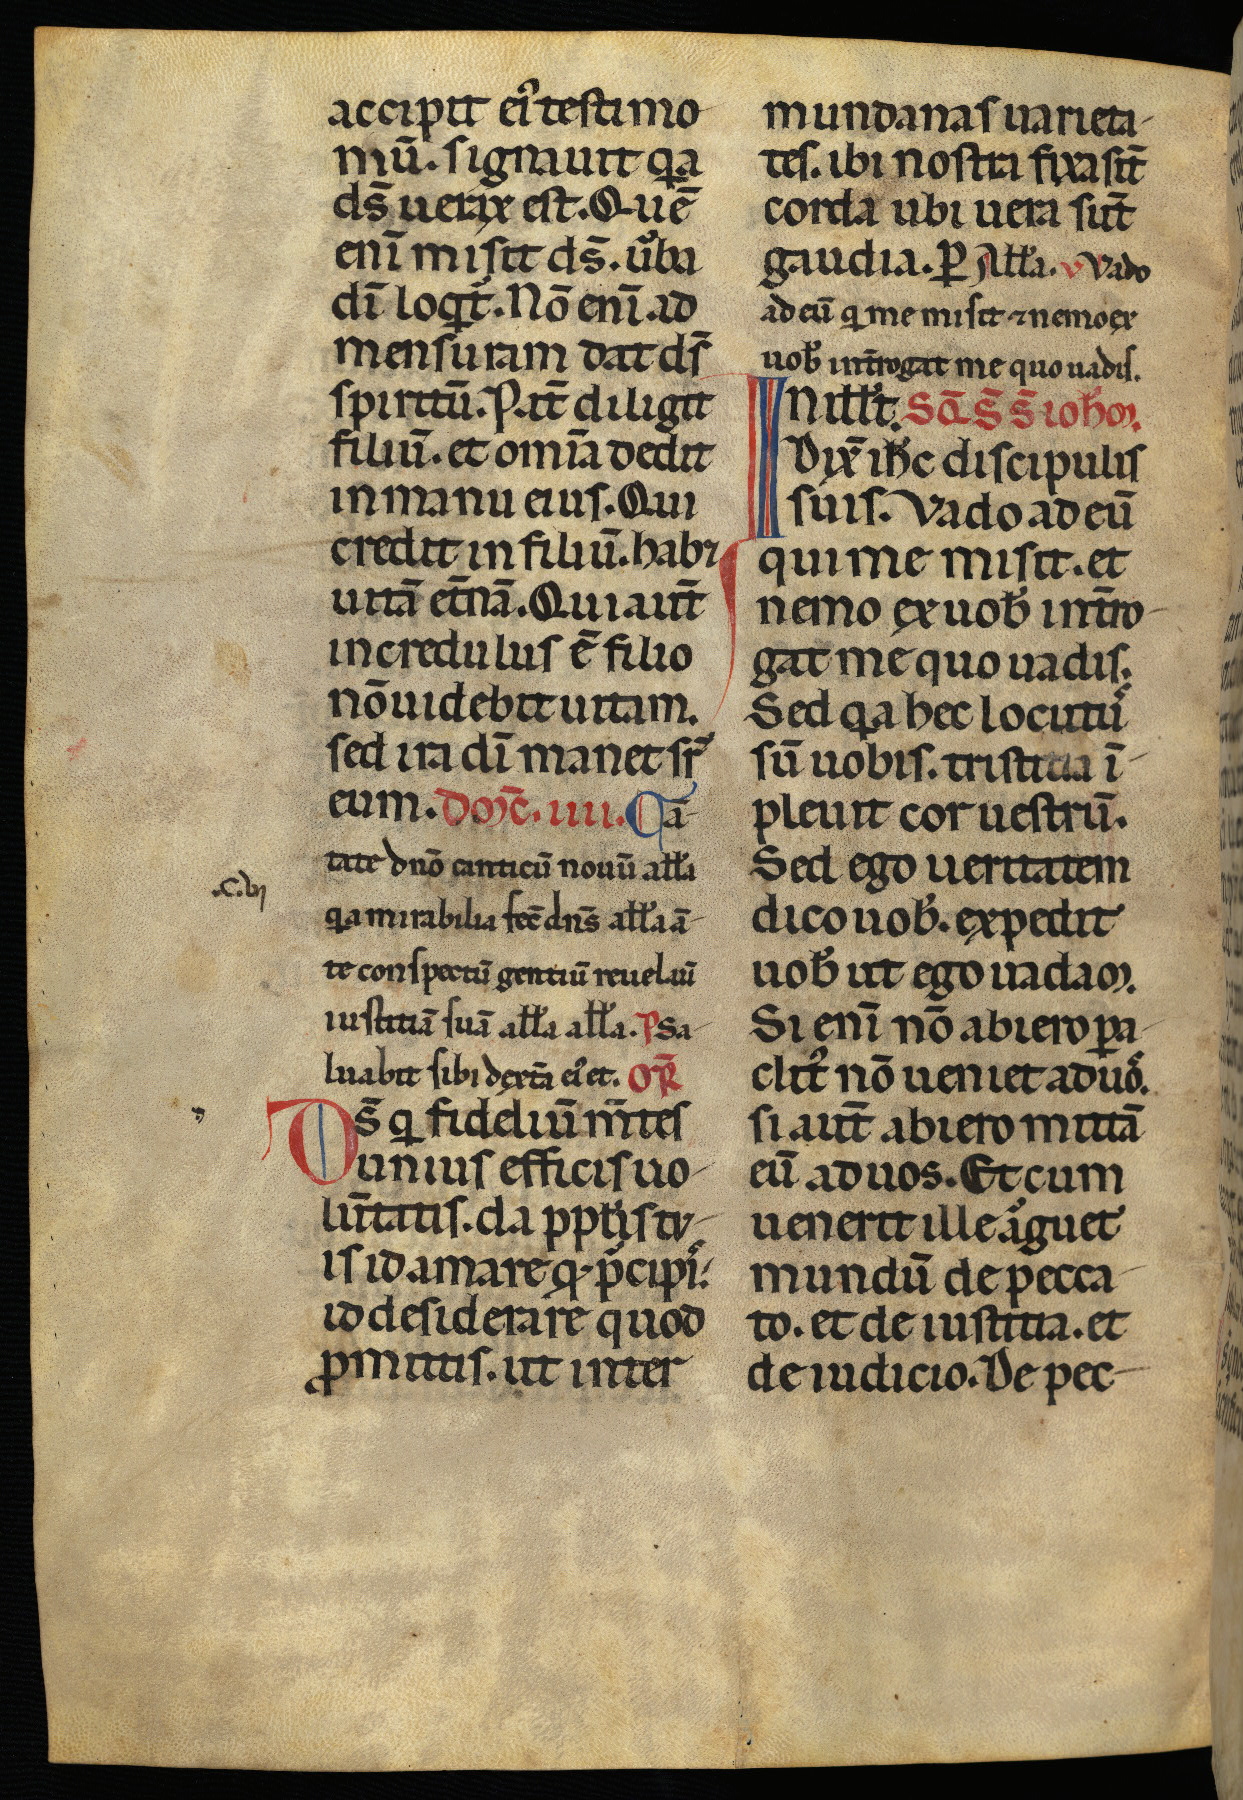 accipit ei᷒ testimo
niū. signauit qa
ds̄ uerax est. Quē
enī misit ds̄. ūba
dī loqt᷑. Nō enī ad
mensuram dat ds̄
spiritū. Pat̄ diligit
filiū. et omīa dedit
in manu eius. Qui
credit in filiū. habꝫ
uitā et̄nā. Qui aut̄
incredulus ē filio
nō uidebit uitam.
sed ira dī manet sr̄
eum. Dom̄c. iiii. Cā-
tate dn̄o canticū nouū all'a
.C.bı
qa mirabilia fec̄ dn̄s all'a ā-
te conspectū gentiū reuelauī
iustitiā suā all'a all'a. p̄ Sa-
luabit sibi dext̄a ei᷒ et. OR̄
Ds̄ qi fideliū m̄tes
unius efficis uo-
lūtatis. da pplis̄ tu-
is id amare qꝫ p̄cipi᷒.
id desiderare quod
ꝓmittis. ut inter
mundanas uarieta-
tes. ibi nostra fixa sīt
corda ubi uera sūt
gaudia. ꝑ All'a. v Vado
ad eū qi me misit ⁊ nemo ex
uob̄ int̄rogat me quo uadis.
IN ill't. Sc̄a S̄ S̄ ioh̄m.
Dix̄ ih̄c discipulis
suis. Vado ad eū
qui me misit. et
nemo ex uob̄ int̄ro-
gat me quo uadis.
Sed qa hec locutu᷒
sū uobis. tristitia ī-
pleuit cor uestrū.
Sed ego ueritatem
dico uob̄. expedit
uob̄ ut ego uadam.
Si enī nō abiero pa-
clit᷒ nō ueniet ad uo᷒.
si aut̄ abiero mittā
eū ad uos. Et cum
uenerit ille a᷑guet
mundū de pecca-
to. et de iustitia. et
de iudicio. De pec-